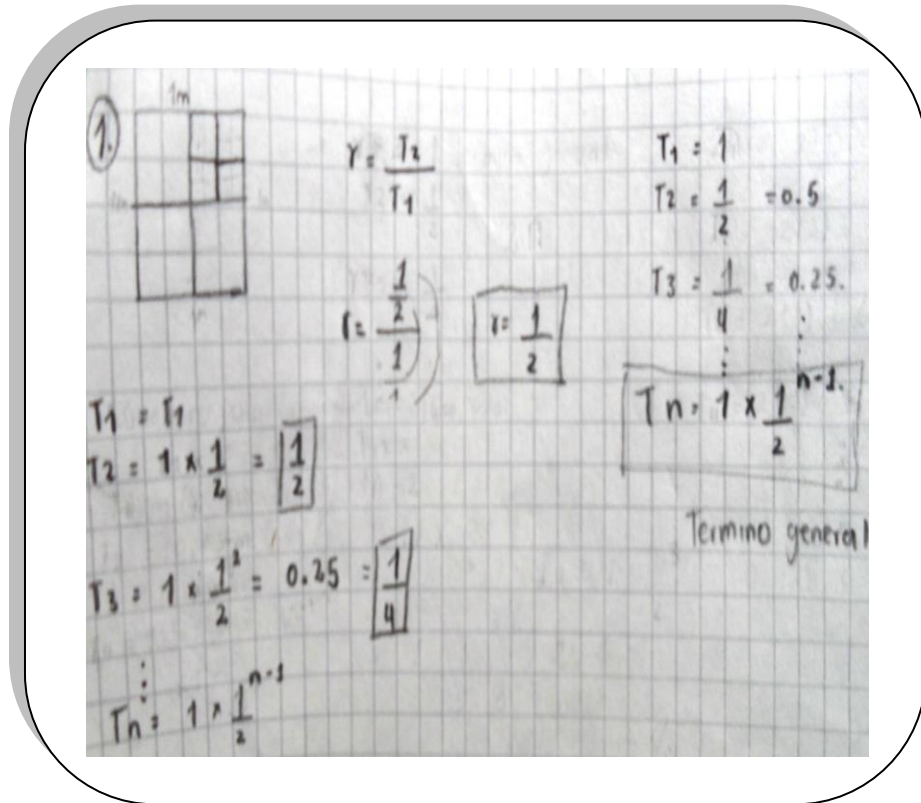 1.
1m
r = T2 / T1
r = 1/2 / 1/1
r = 1/2
T1 = 1
T2 = 1/2 = 0.5
T3 = 1/4 = 0.25.
⋮ ⋮
Tn = 1 x 1/2 ^n-1.
Termino general
T1 = T1
T2 = 1 x 1/2 = 1/2
T3 = 1 x 1²/2 = 0.25 = 1/4
⋮
Tn = 1 x 1/2 ^n-1